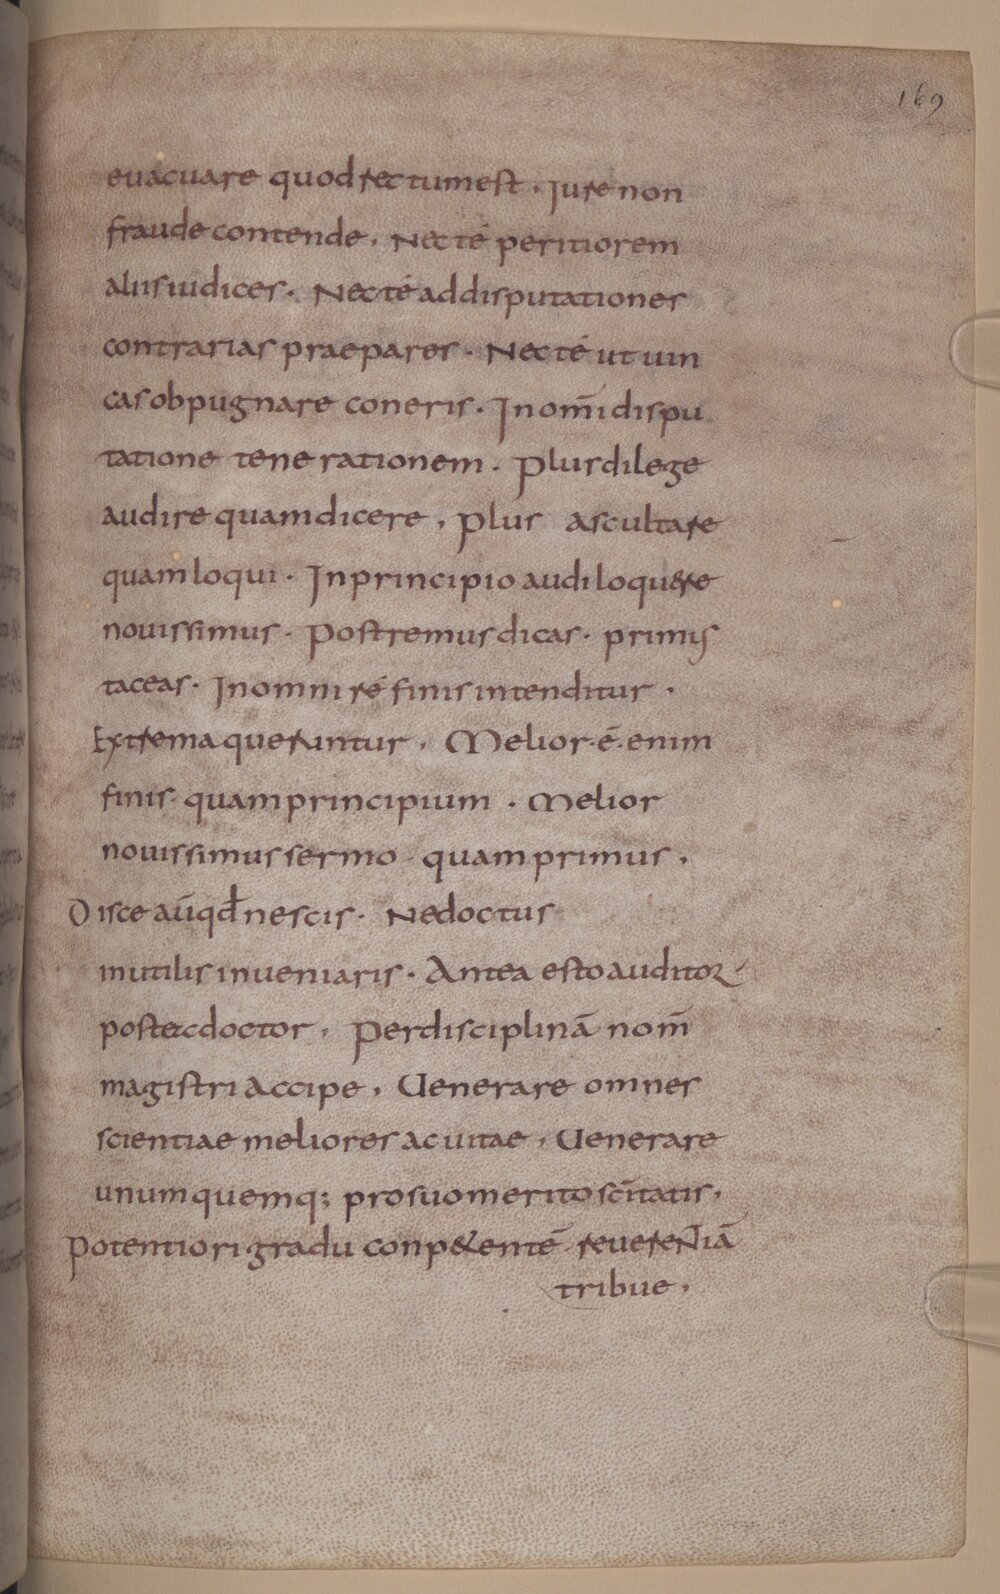 169
euacuare quod rectum est . Iure non
fraude contende . Nec té peritiorem
aliis iudices . Nec té ad disputationes
contrarias praepares . Nec té ut uin
cas obpugnare coneris . In om̄i dispu
tatione tene rationem . Plus dilege
audire quam dicere , Plus ascultare
quam loqui . In principio audi loquere
nouissimus . Postremus dicas . primis
taceas . In omni ré finis intenditur .
Extrema queruntur . Melior . ē . enim
finis quam principium . Melior
nouissimus sermo quam primus .
Disce aū qđ nescis . Ne doctus
inutilis inueniaris . Antea esto auditor
postea doctor . Per disciplinā nom̄
magistri accipe , Uenerare omnes
scientiae meliores ac uitae , Uenerare
unumquemq; pro suo merito sc̄itatis ,
Potentiori gradu conp&entē reuerentiā
tribue .